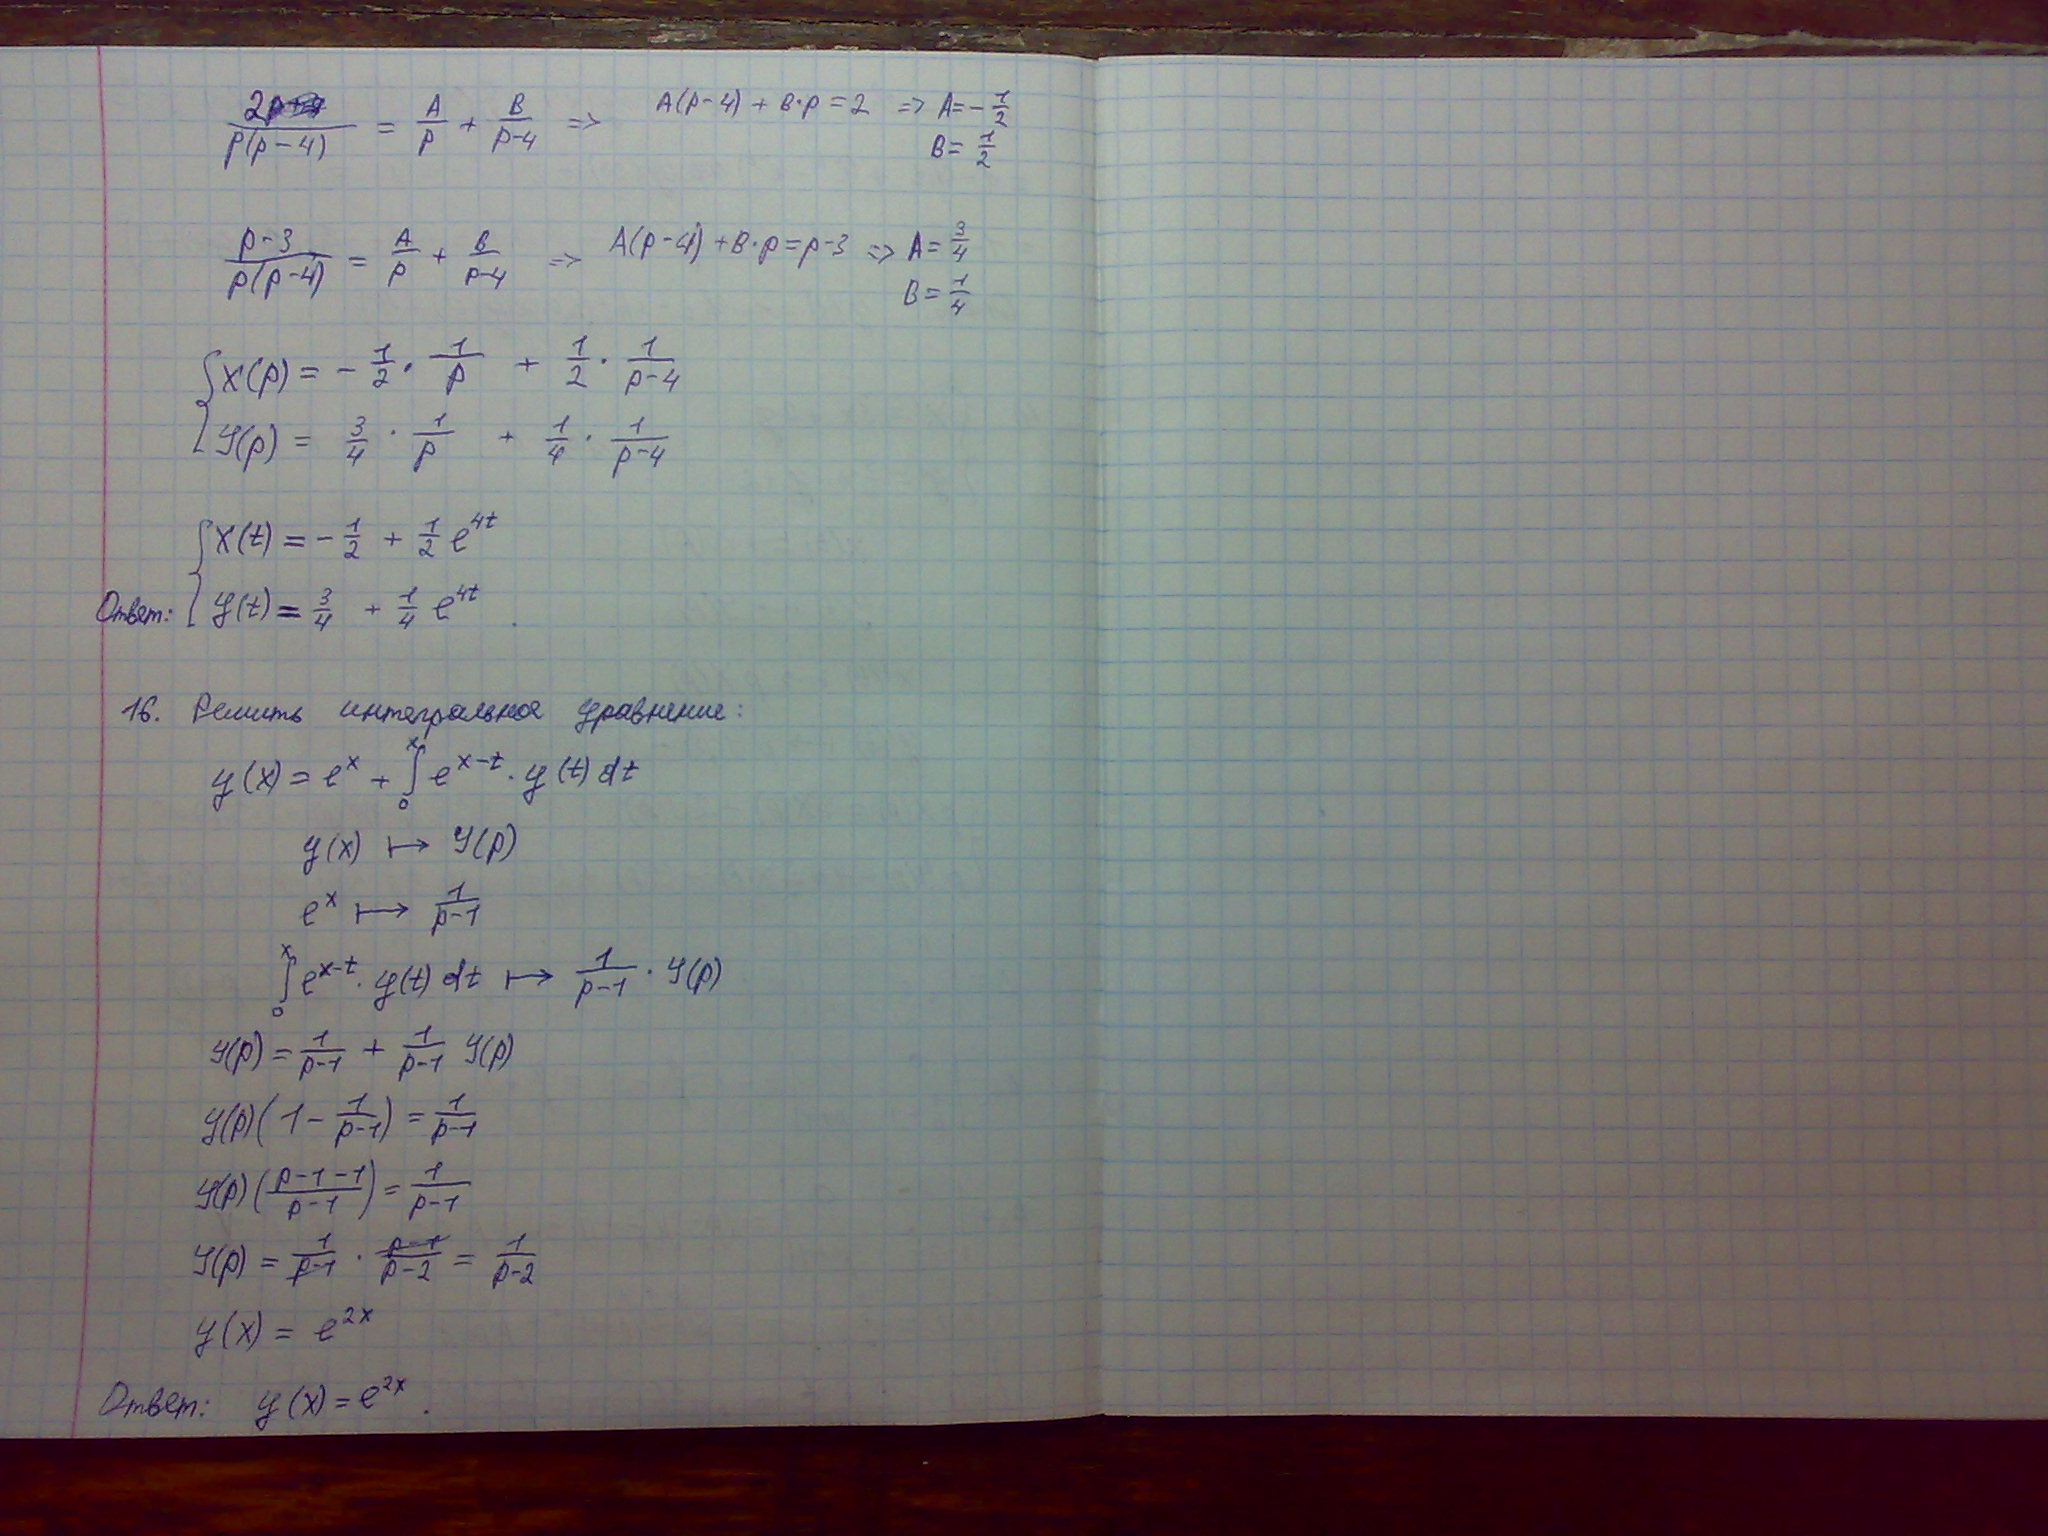 2/(p(p-4)) = A/p + B/(p-4) => A(p-4) + B·p = 2 => A = -1/2
B = 1/2
(p-3)/(p(p-4)) = A/p + B/(p-4) => A(p-4) + B·p = p-3 => A = 3/4
B = 1/4
{ X(p) = -1/2 · 1/p + 1/2 · 1/(p-4)
Y(p) = 3/4 · 1/p + 1/4 · 1/(p-4)
{ x(t) = -1/2 + 1/2 e^{4t}
Ответ: y(t) = 3/4 + 1/4 e^{4t}
16. Решить интегральное уравнение:
y(x) = e^x + ∫_0^x e^{x-t} · y(t) dt
y(x) ↦ Y(p)
e^x ↦ 1/(p-1)
∫_0^x e^{x-t} · y(t) dt ↦ 1/(p-1) · Y(p)
Y(p) = 1/(p-1) + 1/(p-1) Y(p)
Y(p)(1 - 1/(p-1)) = 1/(p-1)
Y(p)((p-1-1)/(p-1)) = 1/(p-1)
Y(p) = 1/(p-1) · (p-1)/(p-2) = 1/(p-2)
y(x) = e^{2x}
Ответ: y(x) = e^{2x}.